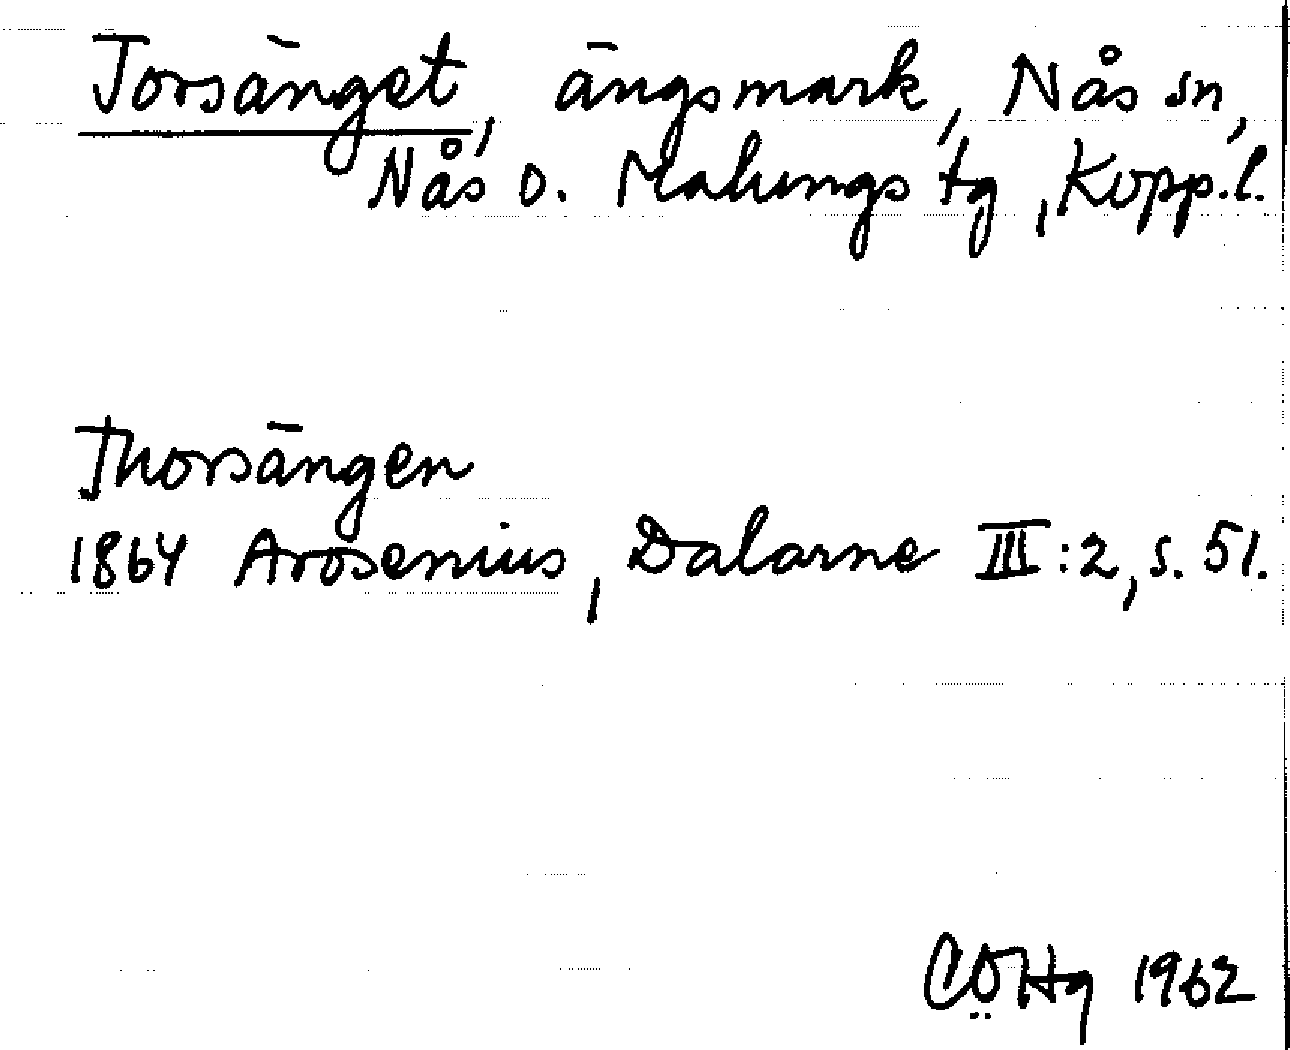 Torsänget, ängsmark, Nås sn,
Nås o. Malungs tg, Kopp.l.
Thorsängen
1864 Arosenius, Dalarne III:2, s. 51.
CÖHg 1962